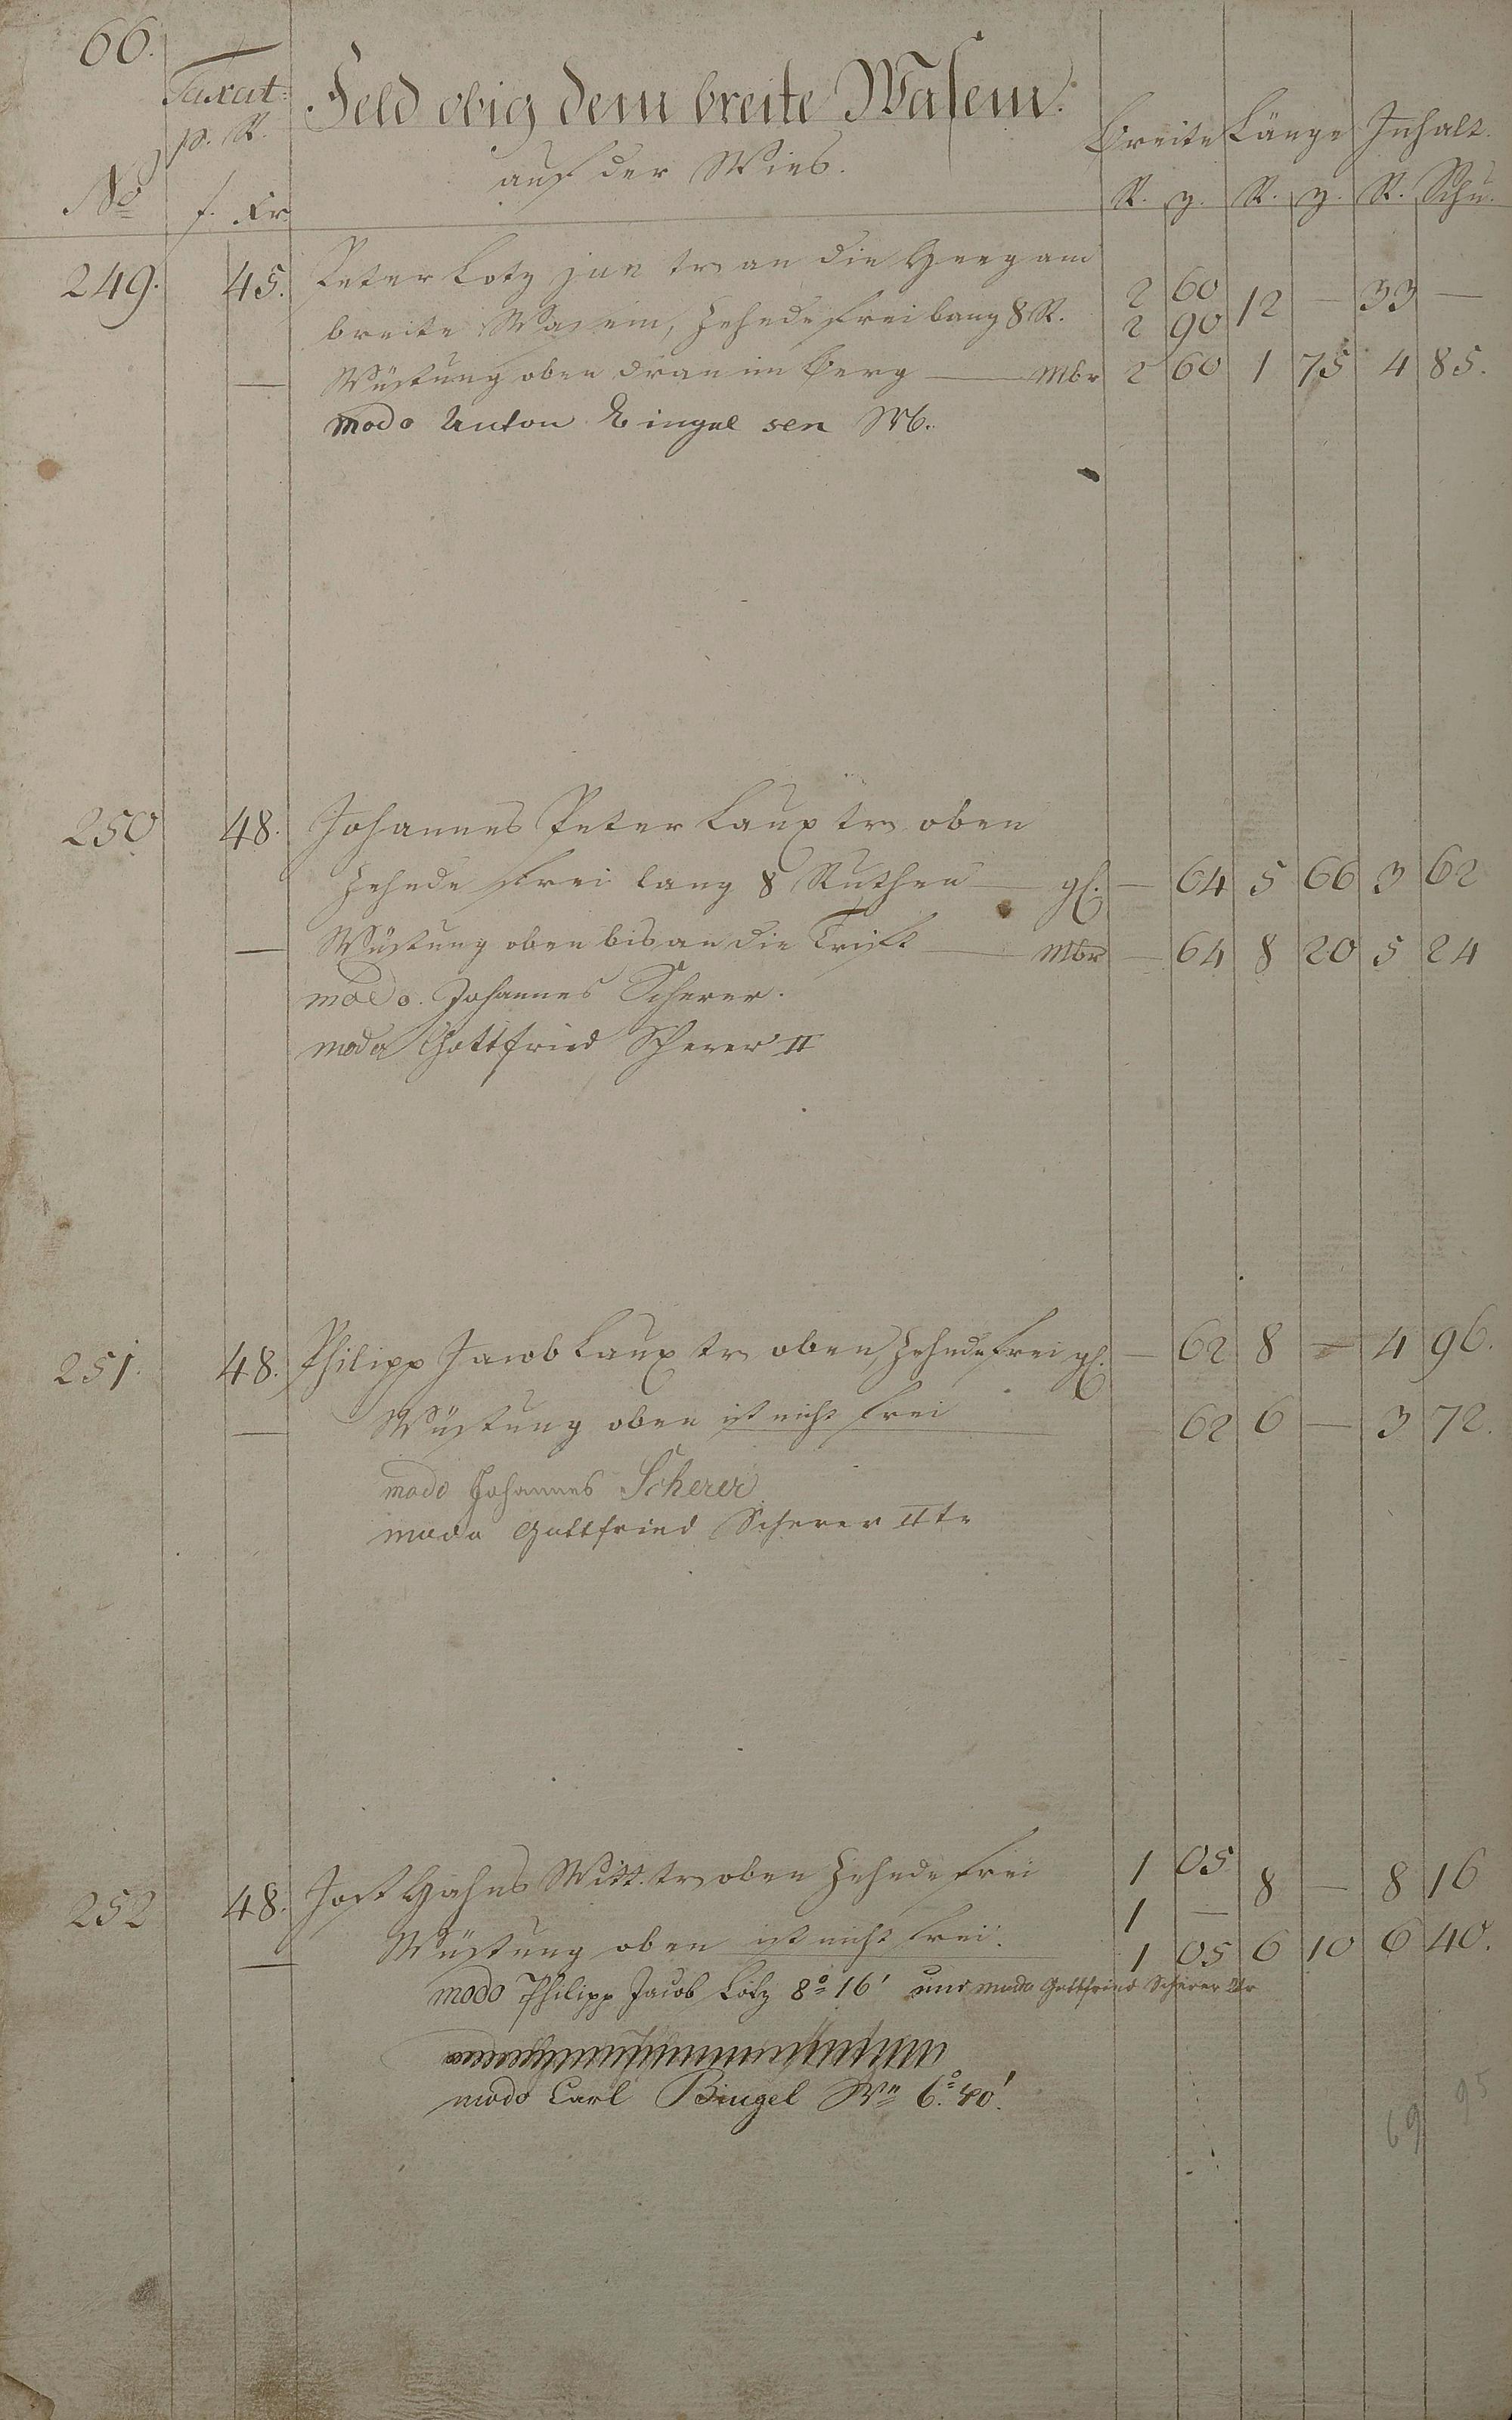 66.
Taxat:
p. R.
Feld obig dem breite Wasem.
auf der Wies.
Breite Länge Inhalt.
No f. Xr. R. z. R. z. R. Schu.
249. 45. Peter Lotz jun tr. an die Heeg am 2 60 12 — 33 —
breite Wasem, Zehende frei lang 8 R. 2 90
— Wüstung oben dran im Berg — Mbr 2 60 1 75 4 85.
modo Anton Bingel sen
250 48. Johannes Peter Laux tr. oben
Zehende frei lang 8 Ruthen — gl. — 64 5 66 3 62
— Wüstung oben bis an die Trift — Mbr — 64 8 20 5 24
modo. Johannes Scherer.
modo Gottfried Scherer II
251. 48. Philipp Jacob Laux tr. oben, Zehende frei gl. — 62 8 — 4 96.
— Wüstung oben ist nicht frei — 62 6 — 3 72.
modo Johannes Scherer
modo Gottfried Scherer IItr
252 48. Jost Hahns Witt. tr. oben Zehende frei 1 05 8 — 8 16
1 —
— Wüstung oben ist nicht frei. 1 05 6 10 6 40.
modo Philipp Jacob Lotz 8° 16' und modo Gottfried Scherer 2tr
modo Carl Bingel Wn 6.° 40'.
69 95